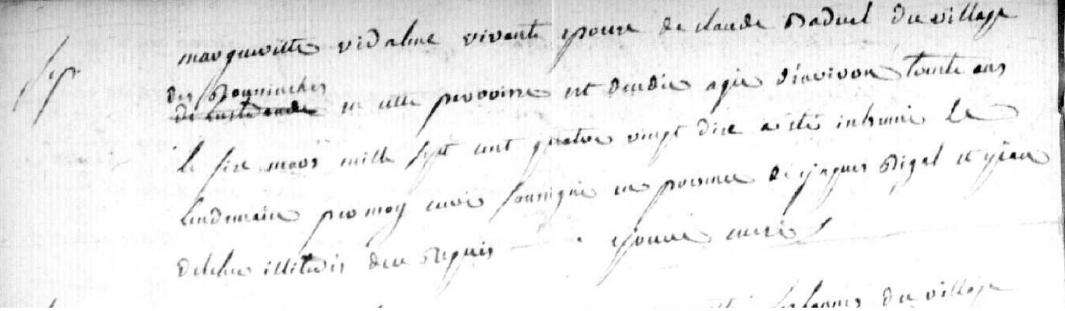 Sep
margueritte vidaline vivante epouse de claude Baduel du village
des Bognirches
en cette parroisse est decedée agée d'environ trente ans
le sixe mars mille sept cent quatre vingt dixe a eté inhumée le
lendemain par moy curé soussigné en presence de jaques Rigal et jean
illiterés dece requis curé
du village